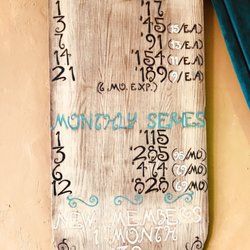 1 $17
3 $45 (15/EA)
7 $91 (13/EA)
14 $154 (11/EA)
21 $189 (9/EA)
(6 MO. EXP.)
MONTHLY SERIES
1 $115
3 $285 (95/MO)
6 $474 (79/MO)
12 $828 (69/MO)
NEW MEMBERS
1 MONTH